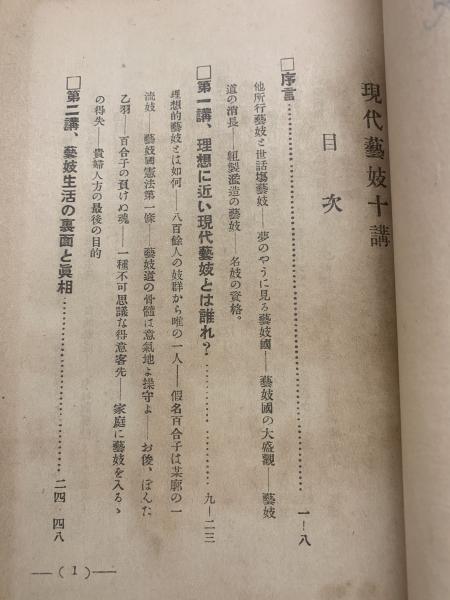 現代藝妓十講
目次
□序言……………………一―八
他所行藝妓と世話場藝妓――夢のやうに見る藝妓國――藝妓國の大盛觀――藝妓
道の消長――粗製濫造の藝妓――名妓の資格。
□第一講、理想に近い現代藝妓とは誰れ?……………………九―二三
理想的藝妓とは如何――八百餘人の妓群から唯の一人――假名百合子は某廓の一
流妓――藝妓國憲法第一條――藝妓道の骨髓は意氣地よ操守よ――お俊、ぽんた
乙羽――百合子の負けぬ魂――一種不可思議な得意客先――家庭に藝妓を入るゝ
の得失――貴婦人方の最後の目的
□第二講、藝妓生活の裏面と眞相……………………二四―四八
――(1)――